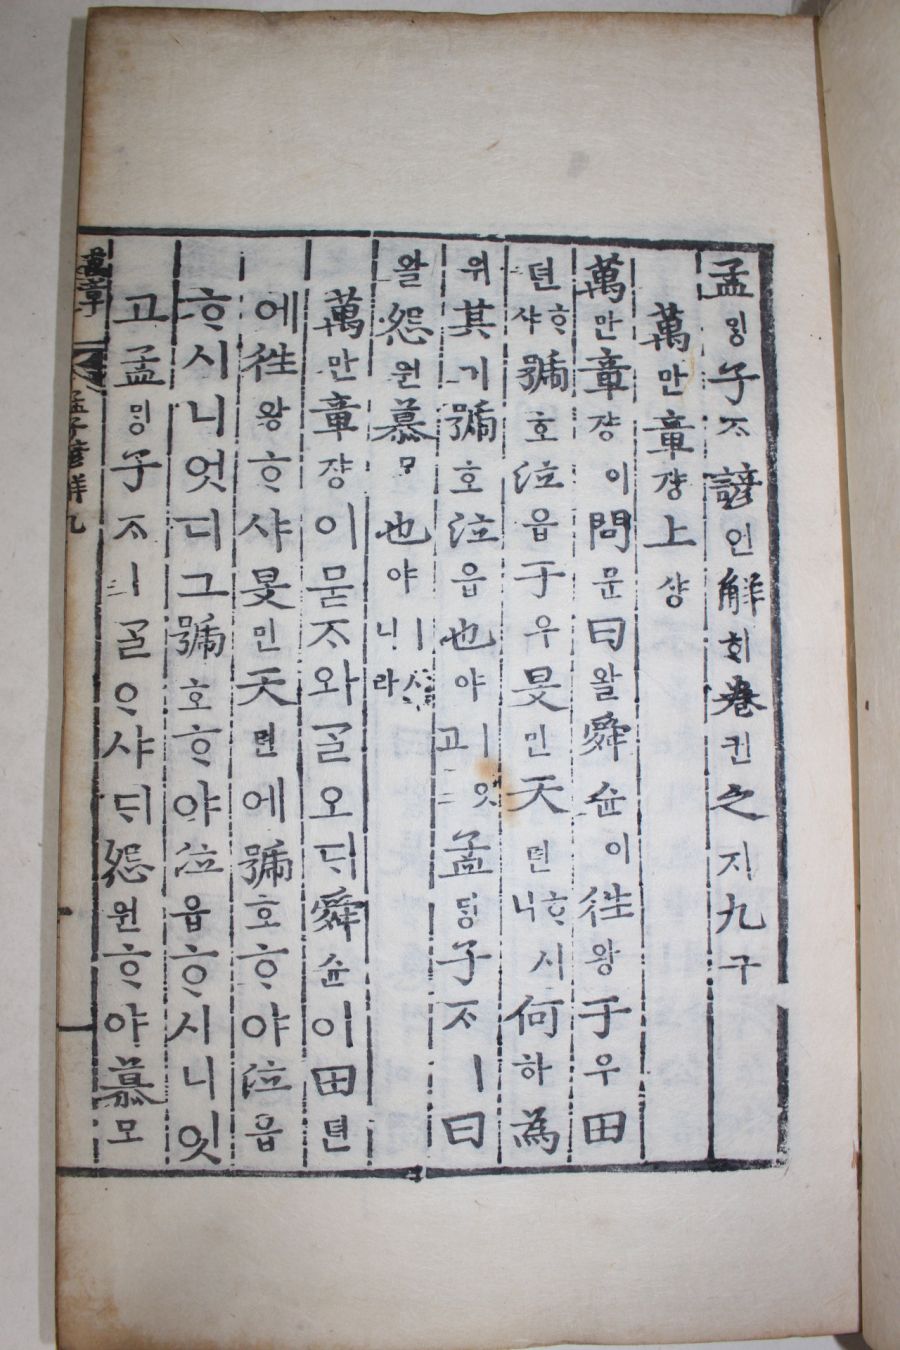 孟ᄆᆡᇰ子ᄌᆞ諺언解ᄒᆡ卷권之지九구
萬만章쟝上샹
萬만章쟝이問문曰왈舜슌이往왕于우田
뎐ᄒᆞ샤號호泣읍于우旻민天텬ᄒᆞ시니何하爲
위其기號호泣읍也야ㅣ잇고孟ᄆᆡᇰ子ᄌᆞㅣ曰
왈怨원慕모也야ㅣ시니라
萬만章쟝이묻ᄌᆞ와ᄀᆞᆯ오ᄃᆡ舜슌이田뎐
에往왕ᄒᆞ샤旻민天텬에號호ᄒᆞ야泣읍
ᄒᆞ시니엇디그號호ᄒᆞ야泣읍ᄒᆞ시니잇
고孟ᄆᆡᇰ子ᄌᆞㅣᄀᆞᆯᄋᆞ샤ᄃᆡ怨원ᄒᆞ야慕모
萬章 孟子諺解九